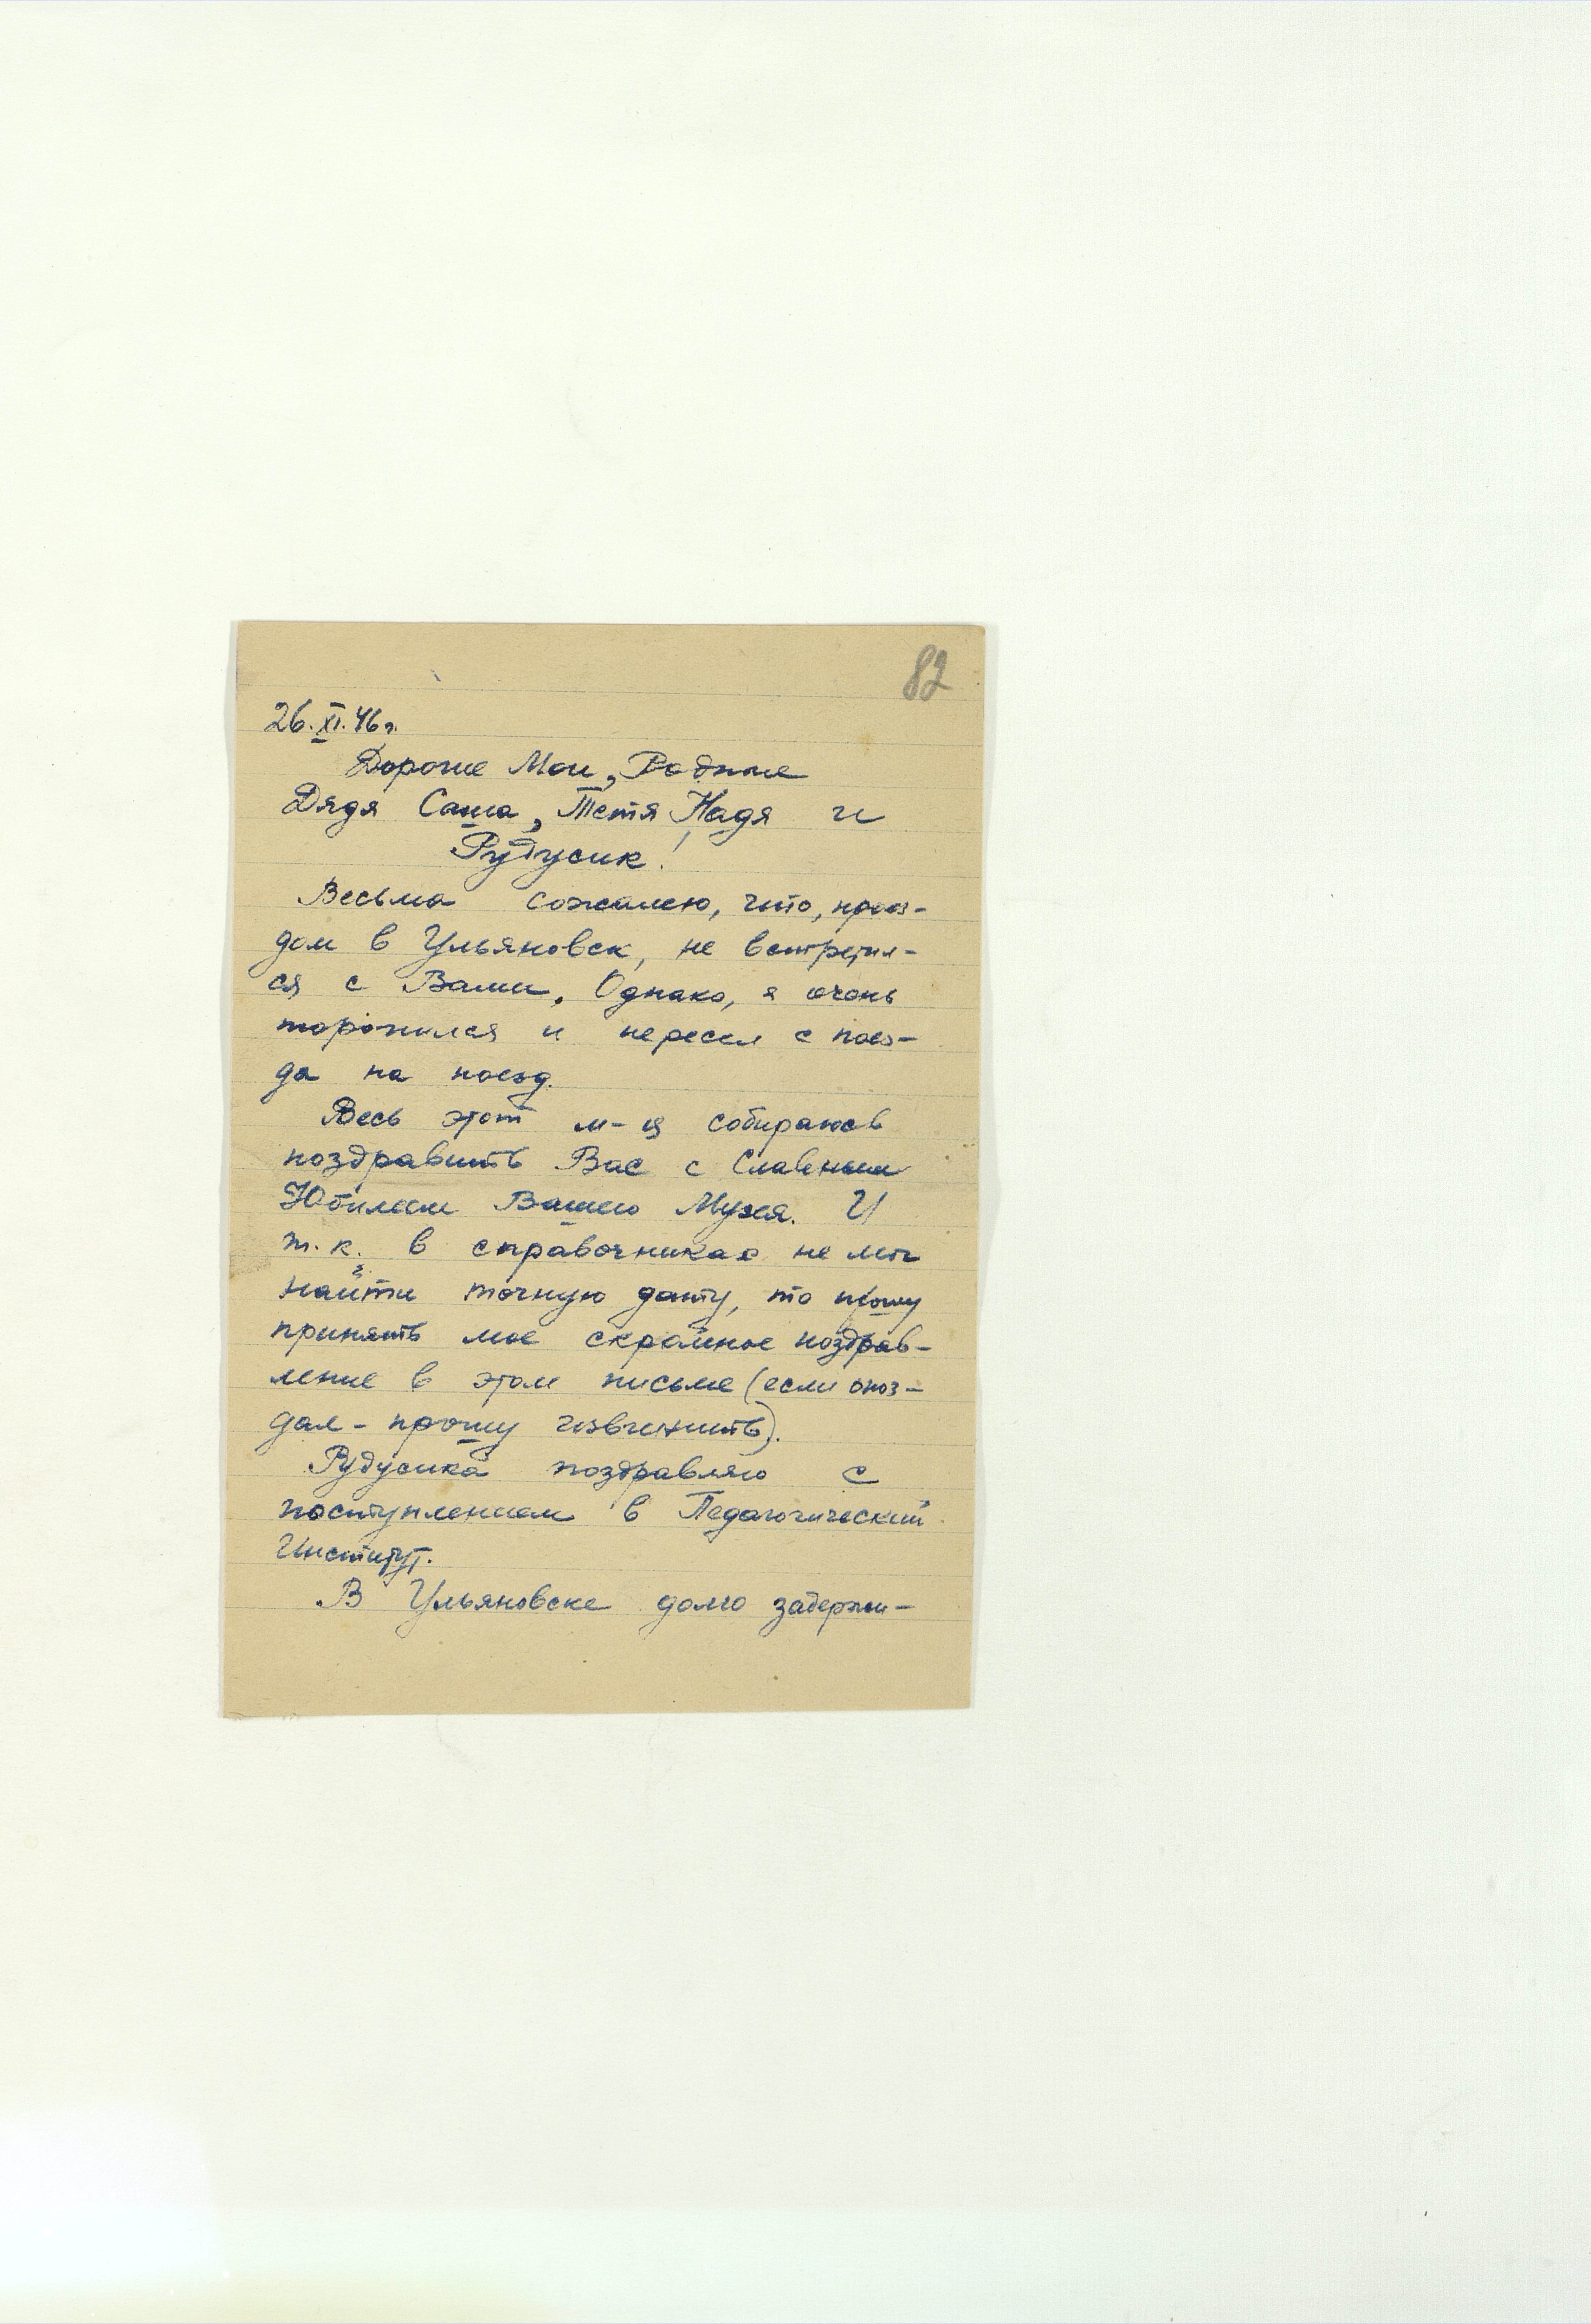 82
26.XI.46г.
Дорогие Мои, Родные
Дядя Саша, Тетя Надя и
Рудусик!
Весьма сожалею, что, проез-
дом в Ульяновск, не встретил-
ся с Вами. Однако, я очень
торопился и пересел с поез-
да на поезд.
Весь этот м-ц собираюсь
поздравить Вас с Славным
Юбилеем Вашего Музея. И
т.к. в справочниках не мог
найти точную дату, то прошу
принять мое скромное поздрав-
ление в этом письме (если опоз-
дал - прошу извинить).
Рудусика поздравляю с
поступлением в Педагогический
Институт.
В Ульяновске долго задержи-